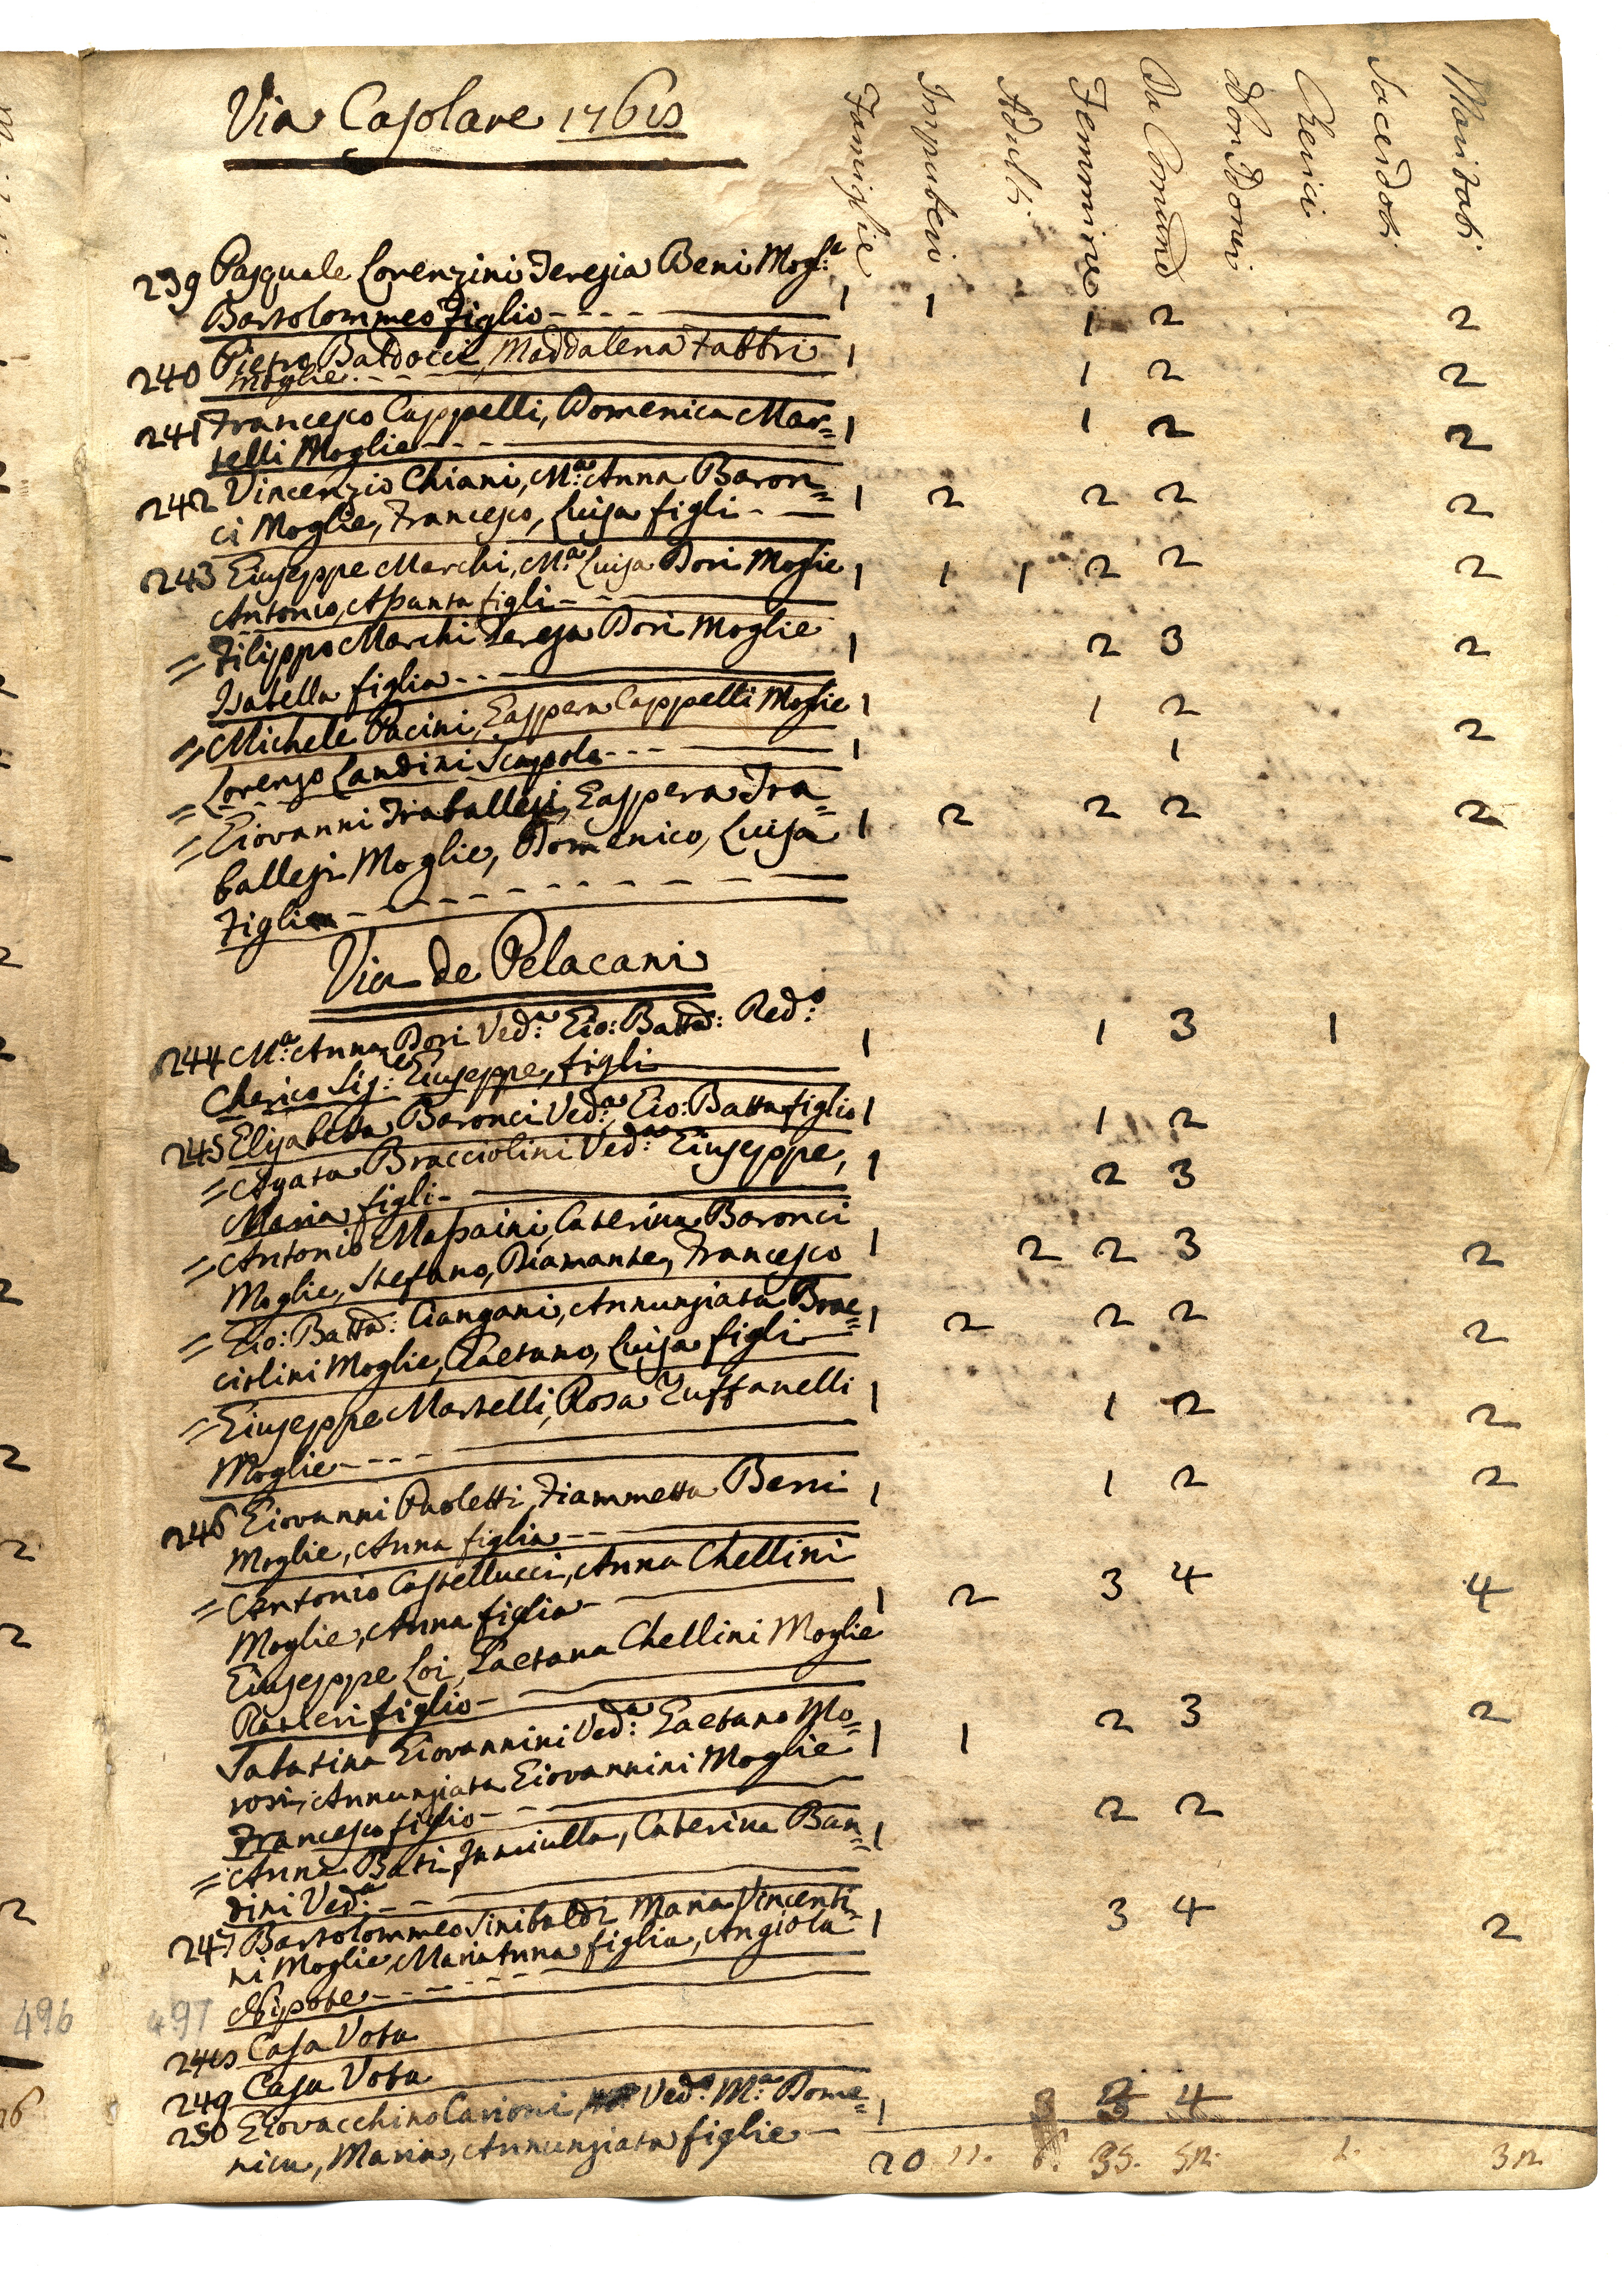 Via Casolare 1768
Famiglie Impuberi Adulti Femmine Da Comun.e Non Domi Cherici Sacerdoti Maritati
239 Pasquale Lorenzini Teresia Beni Mogl:e
Bartolommeo figlio - - - - 1 1 1 2 2
240 Pietro Baldocci, Maddalena Fabbri 1
Moglie - - - 1 2 2
241 Francesco Cappelli, Domenica Mar= 1 1 2 2
telli Moglie - - -
242 Vincenzio Chiani, M:a Anna Baron= 1 2 2 2 2
ci Moglie, Francesco, Luisa figli - -
243 Giuseppe Marchi, M:a Luisa Dori Moglie 1 1 1 2 2 2
Antonio, Assunta figli - -
= Filippo Marchi Teresa Dori Moglie 1 2 3 2
Isabella figlia - - -
= Michele Pacini, Gaspera Cappelli Moglie 1 1 2 2
= Lorenzo Landini Scapolo - - - 1 1
= Giovanni Traballesi, Gaspera Tra= 1 2 2 2 2
ballesi Moglie, Domenico, Luisa
Figli - - - - - - - - -
Via de Pelacani
244 M:a Anna Dori Ved:a Gio: Batta: Red:o 1 1 3 1
Cherico Sig:e Giuseppe, figli
245 Elisabetta Baronci Ved:a, Gio: Batta figlio 1 1 2
= Agata Bracciolini Ved:a Giuseppe, 1 2 3
Maria figli -
= Antonio Massaini, Caterina Baronci 1 2 2 3 2
Moglie, Stefano, Diamante, Francesco
= Gio: Batta: Ciangani, Annunziata Brac= 1 2 2 2 2
ciolini Moglie, Gaetano, Luisa figli
= Giuseppe Martelli, Rosa Zuffanelli 1 1 2 2
Moglie - - - -
246 Giovanni Paoletti, Fiammetta Berni 1 1 2 2
Moglie, Anna figlia - -
= Antonio Castellucci, Anna Chellini
Moglie, Anna figlia - 1 2 3 4 4
Giuseppe Loi, Gaetana Chellini Moglie
Ranieri figlio -
Sabatina Giovannini Ved:a Gaetano Mo= 1 1 2 3 2
rosi, Annunziata Giovannini Moglie
Francesco figlio - -
= Anna Bati Fanciulla, Caterina Ban= 1 2 2
dini Ved:a - -
247 Bartolommeo Sinibaldi Maria Vincenti= 1 3 4 2
ni Moglie, Maria Anna figlia, Angiola
Nipote - - - - -
496 497
248 Casa Vota
249 Casa Vota
250 Giovacchino Carioni, Ved:o M:a Dome= 1 3 4
nica, Maria, Annunziata figlie -
20 11. 6. 35. 52. 1. 32